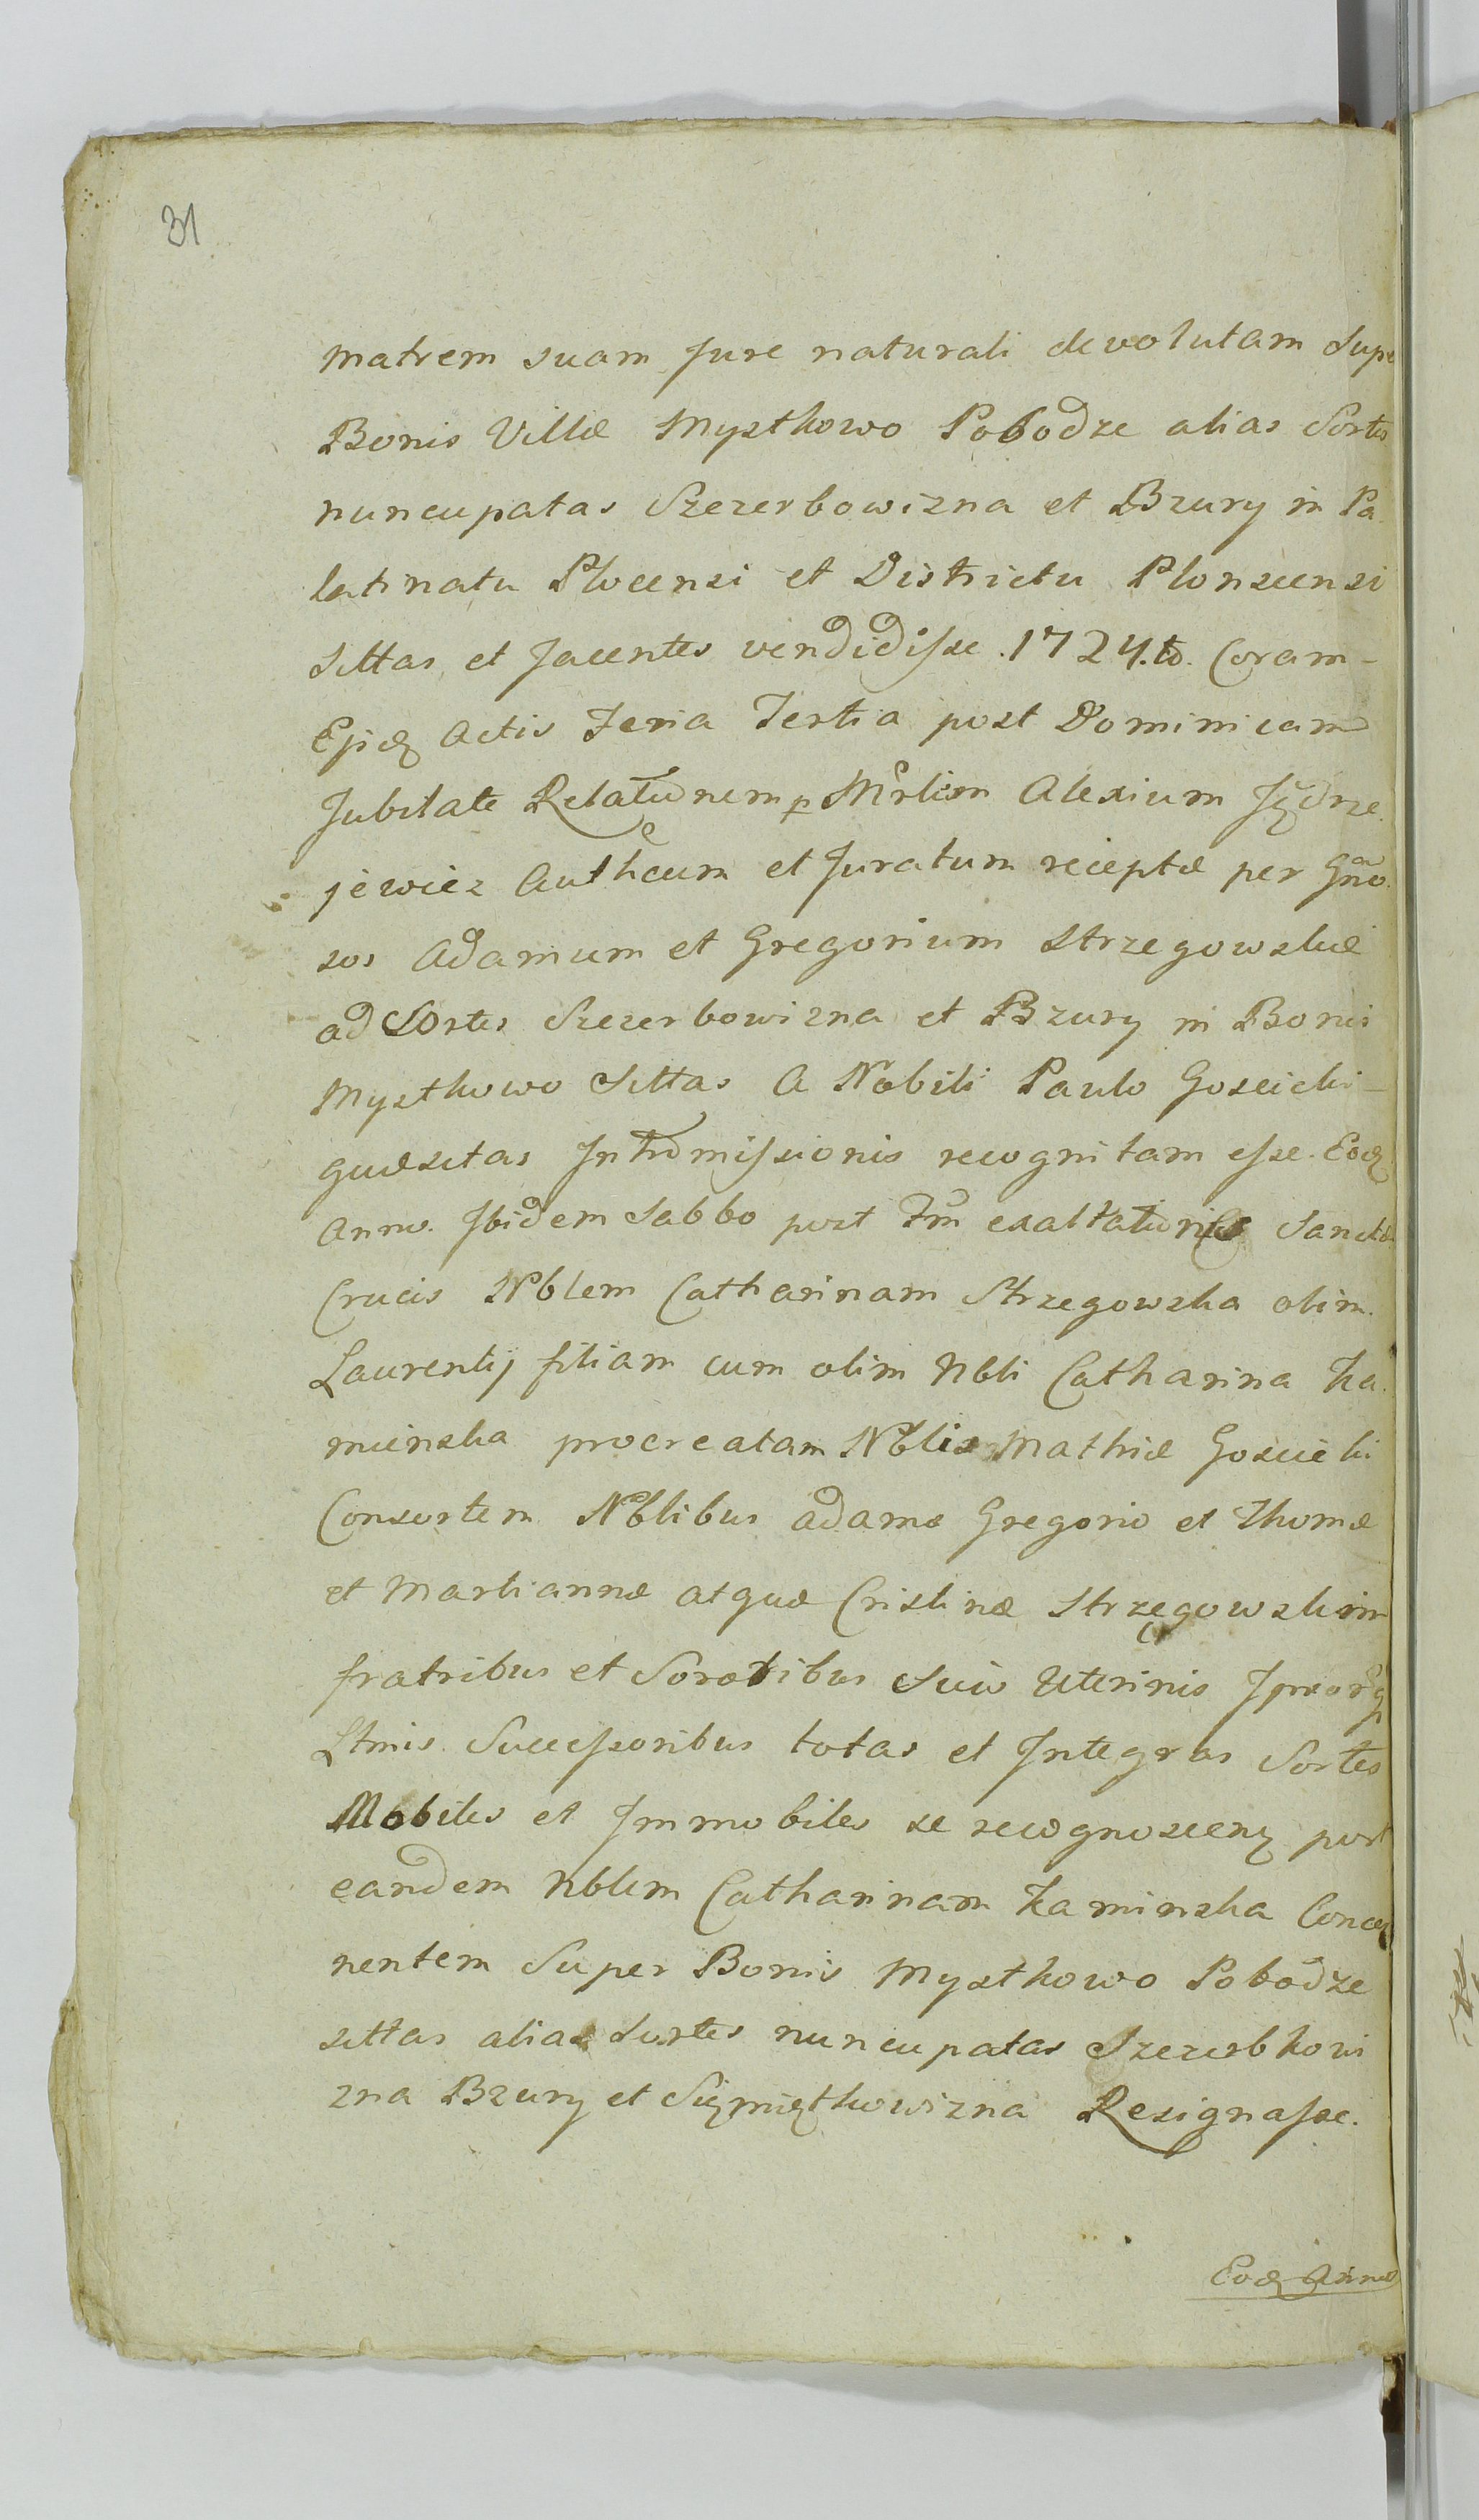 31
matrem suam Jure naturali devolutam Supe
Bonis Villæ Mystkowo Pobodze alias Sortes
nuncupatas Szczerbowizna et Bzury in Pa
latinatu Plocensi et Districtu Plonscensi
Sittas et Jacentes vendidisse. 1724.to. Coram
Ejsdq Actis Feria Tertia post Dominicam
Jubilate Relationem p Mrlem Alexium Jędrze
jewicz Authcum et Juratum receptæ per Gno
sos Adamum et Gregorium Strzegowskie
ad Sortes Szczerbowizna et Bzury in Bonis
Mystkowo Sittas A Nobili Paulo Goscicki
quæsitas Intromissionis recognitam esse. Eodq
Anno. Ibidem Sabbo post Fm exaltationis Sanctæ
Crucis Nblem Catharinam Strzegowska olim
Laurentij filiam cum olim Nbli Catharina Ka
mienska procreatam Nblis Mathiæ Goscicki
Consortem Nblibus Adamo Gregorio et Thomæ
et Martiannæ atque Cristinæ Strzegowskim
fratribus et Sororibus Suis Uterinis
Ltmis Successoribus totas et Integras Sortes
Mobiles et Immobiles se recognoscenq post
eandem Nblem Catharinam Kaminska Concer
nentem Super Bonis Mystkowo Pobodze
sittas alias Sortes nuncupatas Szczerbkowi
zna Bzury et Resignasse.
Eodq Anno